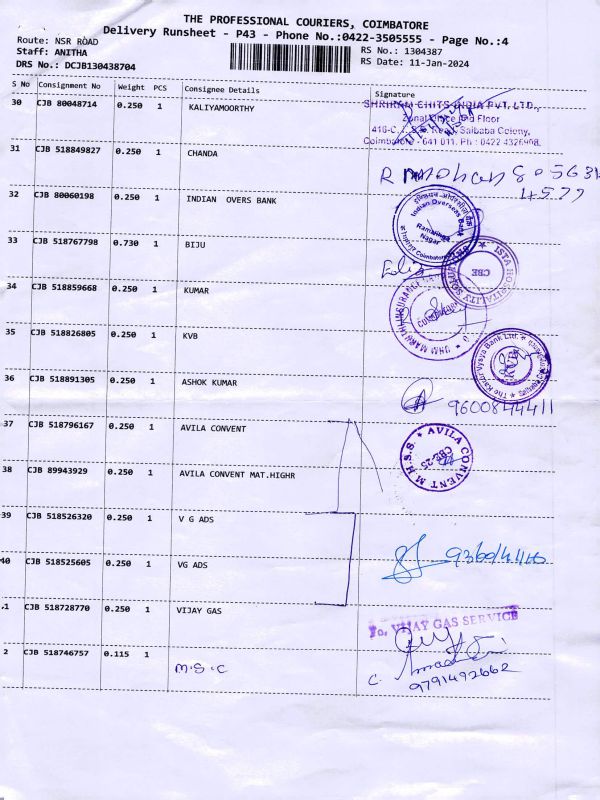 THE PROFESSIONAL COURIERS, COIMBATORE
Delivery Runsheet - P43 - Phone No.:0422-3505555 - Page No.:4
Route: NSR ROAD
Staff: ANITHA
RS No.: 1304387
DRS No.: DCJB130438704
RS Date: 11-Jan-2024
S No Consignment No Weight PCS Consignee Details Signature
30 CJB 80048714 0.250 1 KALIYAMOORTHY
SHRIRAM CHITS INDIA PVT. LTD.,
Floor
Saibaba Colony,
Coimbatore - 641 011. Ph : 0422 4326908.
31 CJB 518849827 0.250 1 CHANDA
32 CJB 80060198 0.250 1 INDIAN OVERS BANK
Indian Overseas Bank
Ramalinga Nagar
33 CJB 518767798 0.730 1 BIJU
ISTA HOSPITALITY
CBE
34 CJB 518859668 0.250 1 KUMAR
35 CJB 518826805 0.250 1 KVB
The Karur Vysya Bank Ltd.
36 CJB 518891305 0.250 1 ASHOK KUMAR
9600844411
37 CJB 518796167 0.250 1 AVILA CONVENT
AVILA CONVENT M.H.S.S
CBE-25
38 CJB 89943929 0.250 1 AVILA CONVENT MAT.HIGHR
39 CJB 518526320 0.250 1 V G ADS
40 CJB 518525605 0.250 1 VG ADS
.1 CJB 518728770 0.250 1 VIJAY GAS
For VIJAY GAS SERVICE
2 CJB 518746757 0.115 1 M.S.C
9791492662